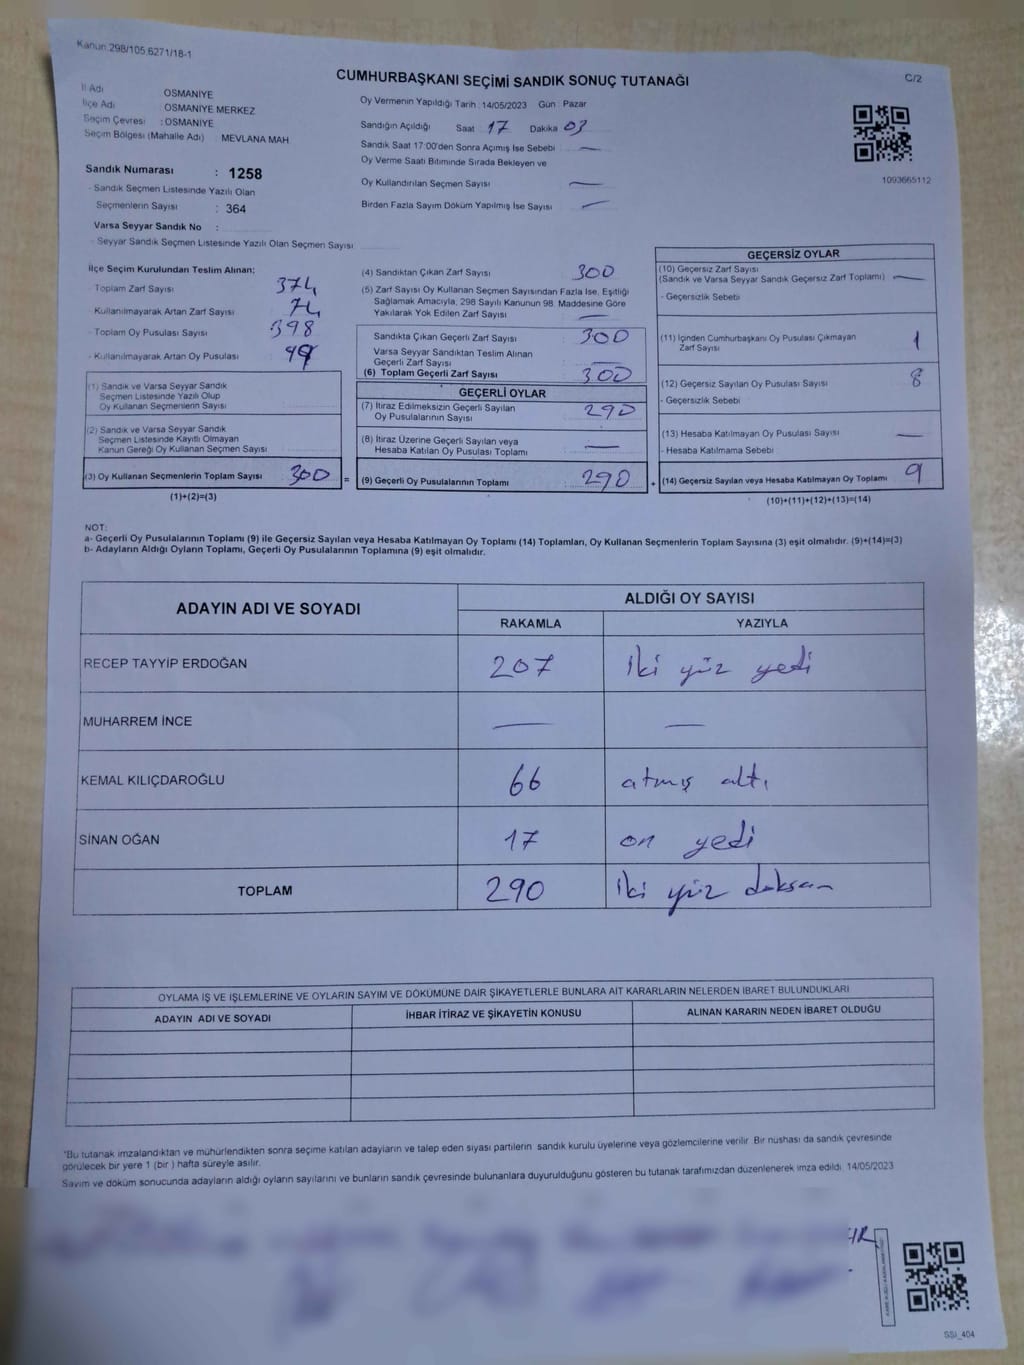 Kanun.298/105.6271/18-1
CUMHURBAŞKANI SEÇİMİ SANDIK SONUÇ TUTANAĞI
C/2
İl Adı OSMANİYE
İlçe Adı : OSMANİYE MERKEZ
Seçim Çevresi : OSMANİYE
Seçim Bölgesi (Mahalle Adı) : MEVLANA MAH
Sandık Numarası : 1258
- Sandık Seçmen Listesinde Yazılı Olan
Seçmenlerin Sayısı : 364
Varsa Seyyar Sandık No :
- Seyyar Sandık Seçmen Listesinde Yazılı Olan Seçmen Sayısı
Oy Vermenin Yapıldığı Tarih : 14/05/2023 Gün : Pazar
Sandığın Açıldığı Saat 17 Dakika 03
Sandık Saat 17:00'den Sonra Açımış İse Sebebi —
Oy Verme Saati Bitiminde Sırada Bekleyen ve
Oy Kullandırılan Seçmen Sayısı —
Birden Fazla Sayım Döküm Yapılmış İse Sayısı —
1093665112
İlçe Seçim Kurulundan Teslim Alınan;
- Toplam Zarf Sayısı 374
- Kullanılmayarak Artan Zarf Sayısı 74
- Toplam Oy Pusulası Sayısı 398
- Kullanılmayarak Artan Oy Pusulası
(1) Sandık ve Varsa Seyyar Sandık
Seçmen Listesinde Yazılı Olup
Oy Kullanan Seçmenlerin Sayısı
(2) Sandık ve Varsa Seyyar Sandık
Seçmen Listesinde Kayıtlı Olmayan
Kanun Gereği Oy Kullanan Seçmen Sayısı
(3) Oy Kullanan Seçmenlerin Toplam Sayısı 300 =
(1)+(2)=(3)
(4) Sandıktan Çıkan Zarf Sayısı 300
(5) Zarf Sayısı Oy Kullanan Seçmen Sayısından Fazla İse, Eşitliği
Sağlamak Amacıyla, 298 Sayılı Kanunun 98. Maddesine Göre
Yakılarak Yok Edilen Zarf Sayısı —
Sandıkta Çıkan Geçerli Zarf Sayısı 300
Varsa Seyyar Sandıktan Teslim Alınan
Geçerli Zarf Sayısı —
(6) Toplam Geçerli Zarf Sayısı 300
GEÇERLİ OYLAR
(7) İtiraz Edilmeksizin Geçerli Sayılan
Oy Pusulalarının Sayısı 290
(8) İtiraz Üzerine Geçerli Sayılan veya
Hesaba Katılan Oy Pusulası Toplamı —
(9) Geçerli Oy Pusulalarının Toplamı 290 +
GEÇERSİZ OYLAR
(10) Geçersiz Zarf Sayısı
(Sandık ve Varsa Seyyar Sandık Geçersiz Zarf Toplamı) —
- Geçersizlik Sebebi
(11) İçinden Cumhurbaşkanı Oy Pusulası Çıkmayan
Zarf Sayısı 1
(12) Geçersiz Sayılan Oy Pusulası Sayısı 8
- Geçersizlik Sebebi
(13) Hesaba Katılmayan Oy Pusulası Sayısı —
- Hesaba Katılmama Sebebi
(14) Geçersiz Sayılan veya Hesaba Katılmayan Oy Toplamı 9
(10)+(11)+(12)+(13)=(14)
NOT:
a- Geçerli Oy Pusulalarının Toplamı (9) ile Geçersiz Sayılan veya Hesaba Katılmayan Oy Toplamı (14) Toplamları, Oy Kullanan Seçmenlerin Toplam Sayısına (3) eşit olmalıdır. (9)+(14)=(3)
b- Adayların Aldığı Oyların Toplamı, Geçerli Oy Pusulalarının Toplamına (9) eşit olmalıdır.
ADAYIN ADI VE SOYADI ALDIĞI OY SAYISI
RAKAMLA YAZIYLA
RECEP TAYYİP ERDOĞAN 207 iki yüz yedi
MUHARREM İNCE — —
KEMAL KILIÇDAROĞLU 66 atmış altı
SİNAN OĞAN 17 on yedi
TOPLAM 290 iki yüz doksan
OYLAMA İŞ VE İŞLEMLERİNE VE OYLARIN SAYIM VE DÖKÜMÜNE DAİR ŞİKAYETLERLE BUNLARA AİT KARARLARIN NELERDEN İBARET BULUNDUKLARI
ADAYIN ADI VE SOYADI İHBAR İTİRAZ VE ŞİKAYETİN KONUSU ALINAN KARARIN NEDEN İBARET OLDUĞU
"Bu tutanak imzalandıktan ve mühürlendikten sonra seçime katılan adayların ve talep eden siyasi partilerin sandık kurulu üyelerine veya gözlemcilerine verilir. Bir nüshası da sandık çevresinde
görülecek bir yere 1 (bir ) hafta süreyle asılır.
Sayım ve döküm sonucunda adayların aldığı oyların sayılarını ve bunların sandık çevresinde bulunanlara duyurulduğunu gösteren bu tutanak tarafımızdan düzenlenerek imza edildi. 14/05/2023
SSİ_404